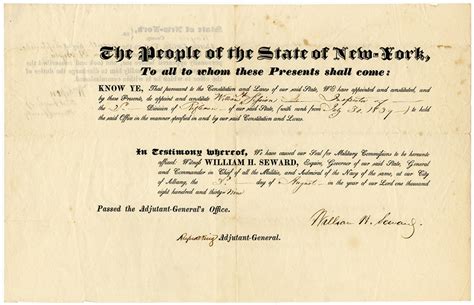 The People of the State of New-York,
To all to whom these Presents shall come:
KNOW YE, That pursuant to the Constitution and Laws of our said State, WE have appointed and constituted, and
by these Present, do appoint and constitute William Inspector of
the Division of Riflemen of our said State, (with rank from July 30, 1839) to hold
the said Office in the manner specified in and by our said Constitution and Laws.
In Testimony whereof, We have caused our Seal for Military Commissions to be hereunto
affixed. Witness WILLIAM H. SEWARD, Esquire, Governor of our said State, General
and Commander in Chief of all the Militia, and Admiral of the Navy of the same, at our City
of Albany, the day of August in the year of our Lord one thousand
eight hundred and thirty-Nine
Passed the Adjutant-General's Office.
William H. Seward
Adjutant-General.